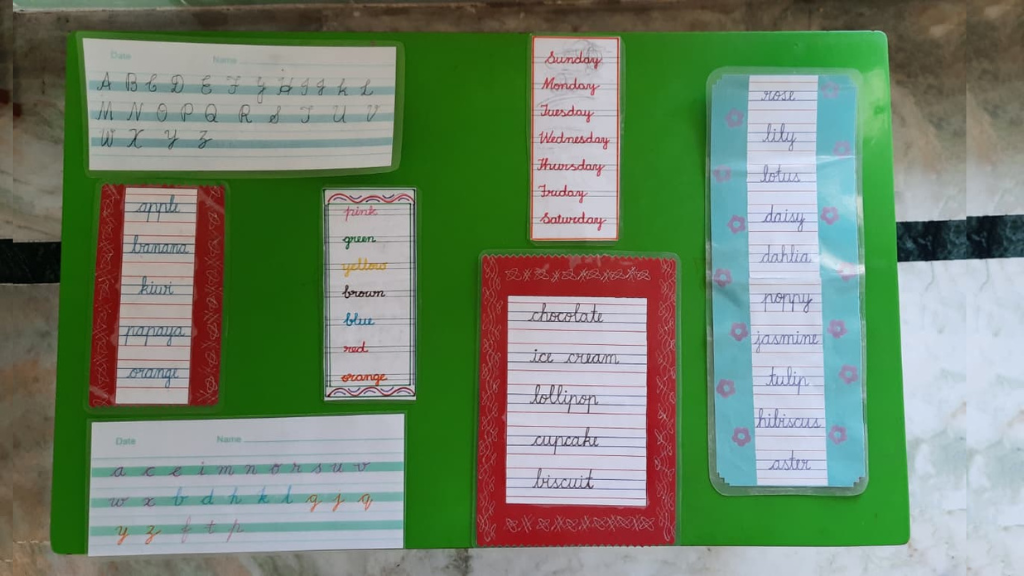 Date Name
A B C D E F G H I J K L
M N O P Q R S T U V
W X Y Z
apple
banana
kiwi
papaya
orange
Date Name
a c e i m n o r s u v
w x b d h k l g j q
y z f t p
pink
green
yellow
brown
blue
red
orange
Sunday
Monday
Tuesday
Wednesday
Thursday
Friday
Saturday
chocolate
ice cream
lollipop
cupcake
biscuit
rose
lily
lotus
daisy
dahlia
poppy
jasmine
tulip
hibiscus
aster